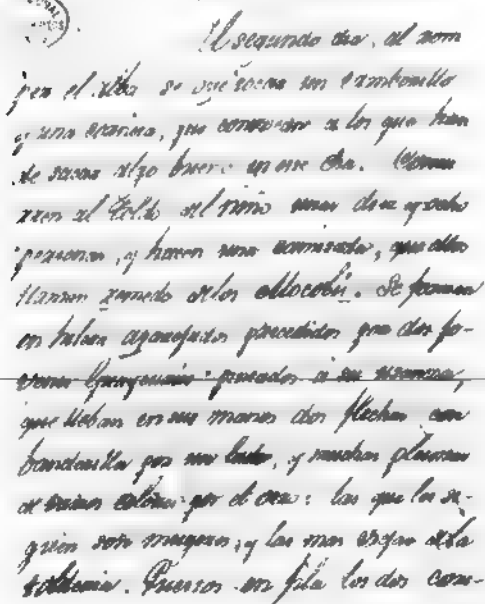 El segundo dia, al rom
per el Alba se oye tocar un tamboril
y una ocarina, que convocan a los que han
de sacar algo bueno en ese dia.
al Toldo del niño unas diez y ocho
personas, y hacen una, que ellos
llaman remedo de los Mocobis. Se forman
en hilera agarrados precedidos por dos jo-
venes a su usanza,
que lleban en sus manos dos flechas con
banderilla por un lado, y muchas plumas
de varios colores por el otro: las que los si-
guen son mugeres, y las mas viejas de la
tolderia. Puestos en fila los dos